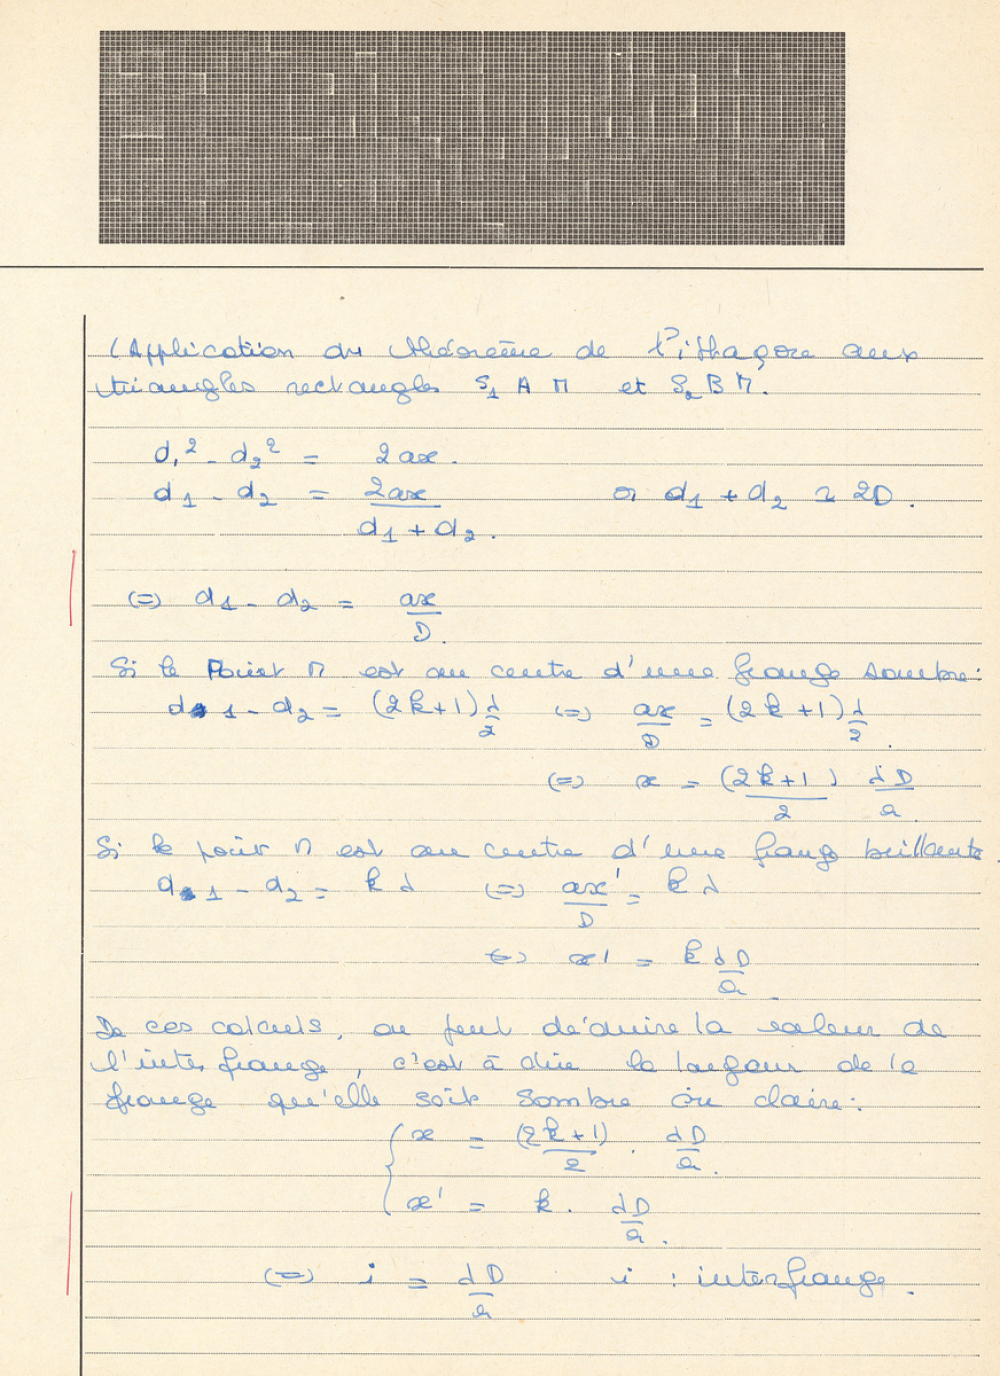 (Application du théorème de Pithagore aux
triangles rectangles S₁ A M et S₂ B M.
d₁² - d₂² = 2ax.
d₁ - d₂ = 2ax / (d₁ + d₂). or d₁ + d₂ ≃ 2D.
(=) d₁ - d₂ = ax / D.
Si le Point M est au centre d'une frange sombre:
d₁ - d₂ = (2k+1) λ/2 (=) ax/D = (2k+1) λ/2.
(=) x = (2k+1)/2 λD/a.
Si le point M est au centre d'une frange brillante.
d₁ - d₂ = k λ (=) ax'/D = k λ
(=) x' = k λD/a.
De ces calculs, on peut déduire la valeur de
l'interfrange, c'est à dire la largeur de la
frange qu'elle soit sombre ou claire:
{ x = (2k+1)/2 . λD/a.
x' = k. λD/a.
(=) i = λD/a i : interfrange.